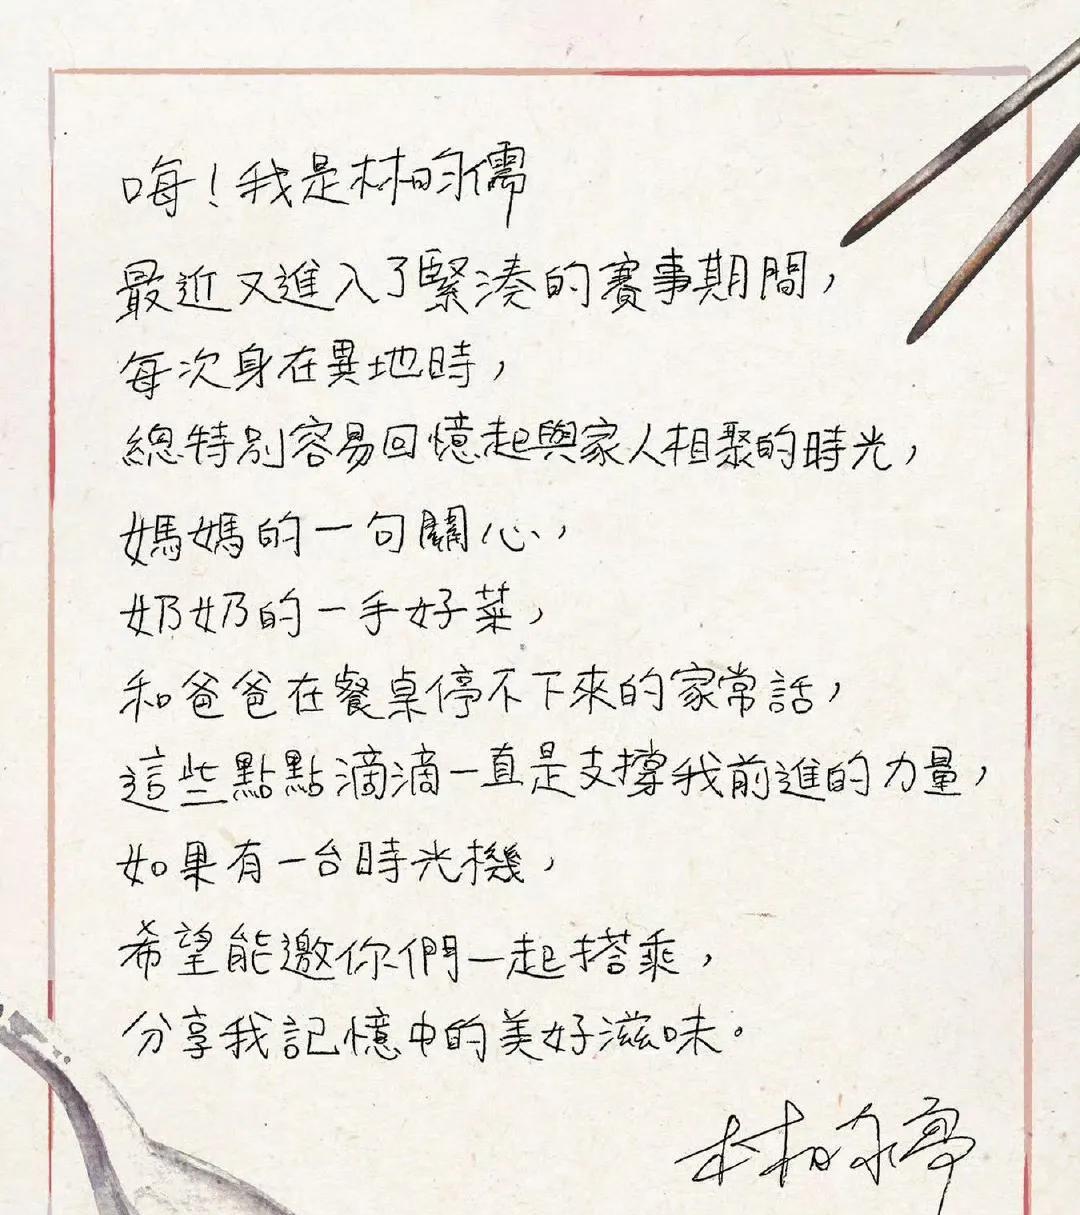 嗨！我是林昀儒
最近又進入了緊湊的賽事期間，
每次身在異地時，
總特別容易回憶起與家人相聚的時光，
媽媽的一句關心，
奶奶的一手好菜，
和爸爸在餐桌停不下來的家常話，
這些點點滴滴一直是支撐我前進的力量，
如果有一台時光機，
希望能邀你們一起搭乘，
分享我記憶中的美好滋味。
林昀儒